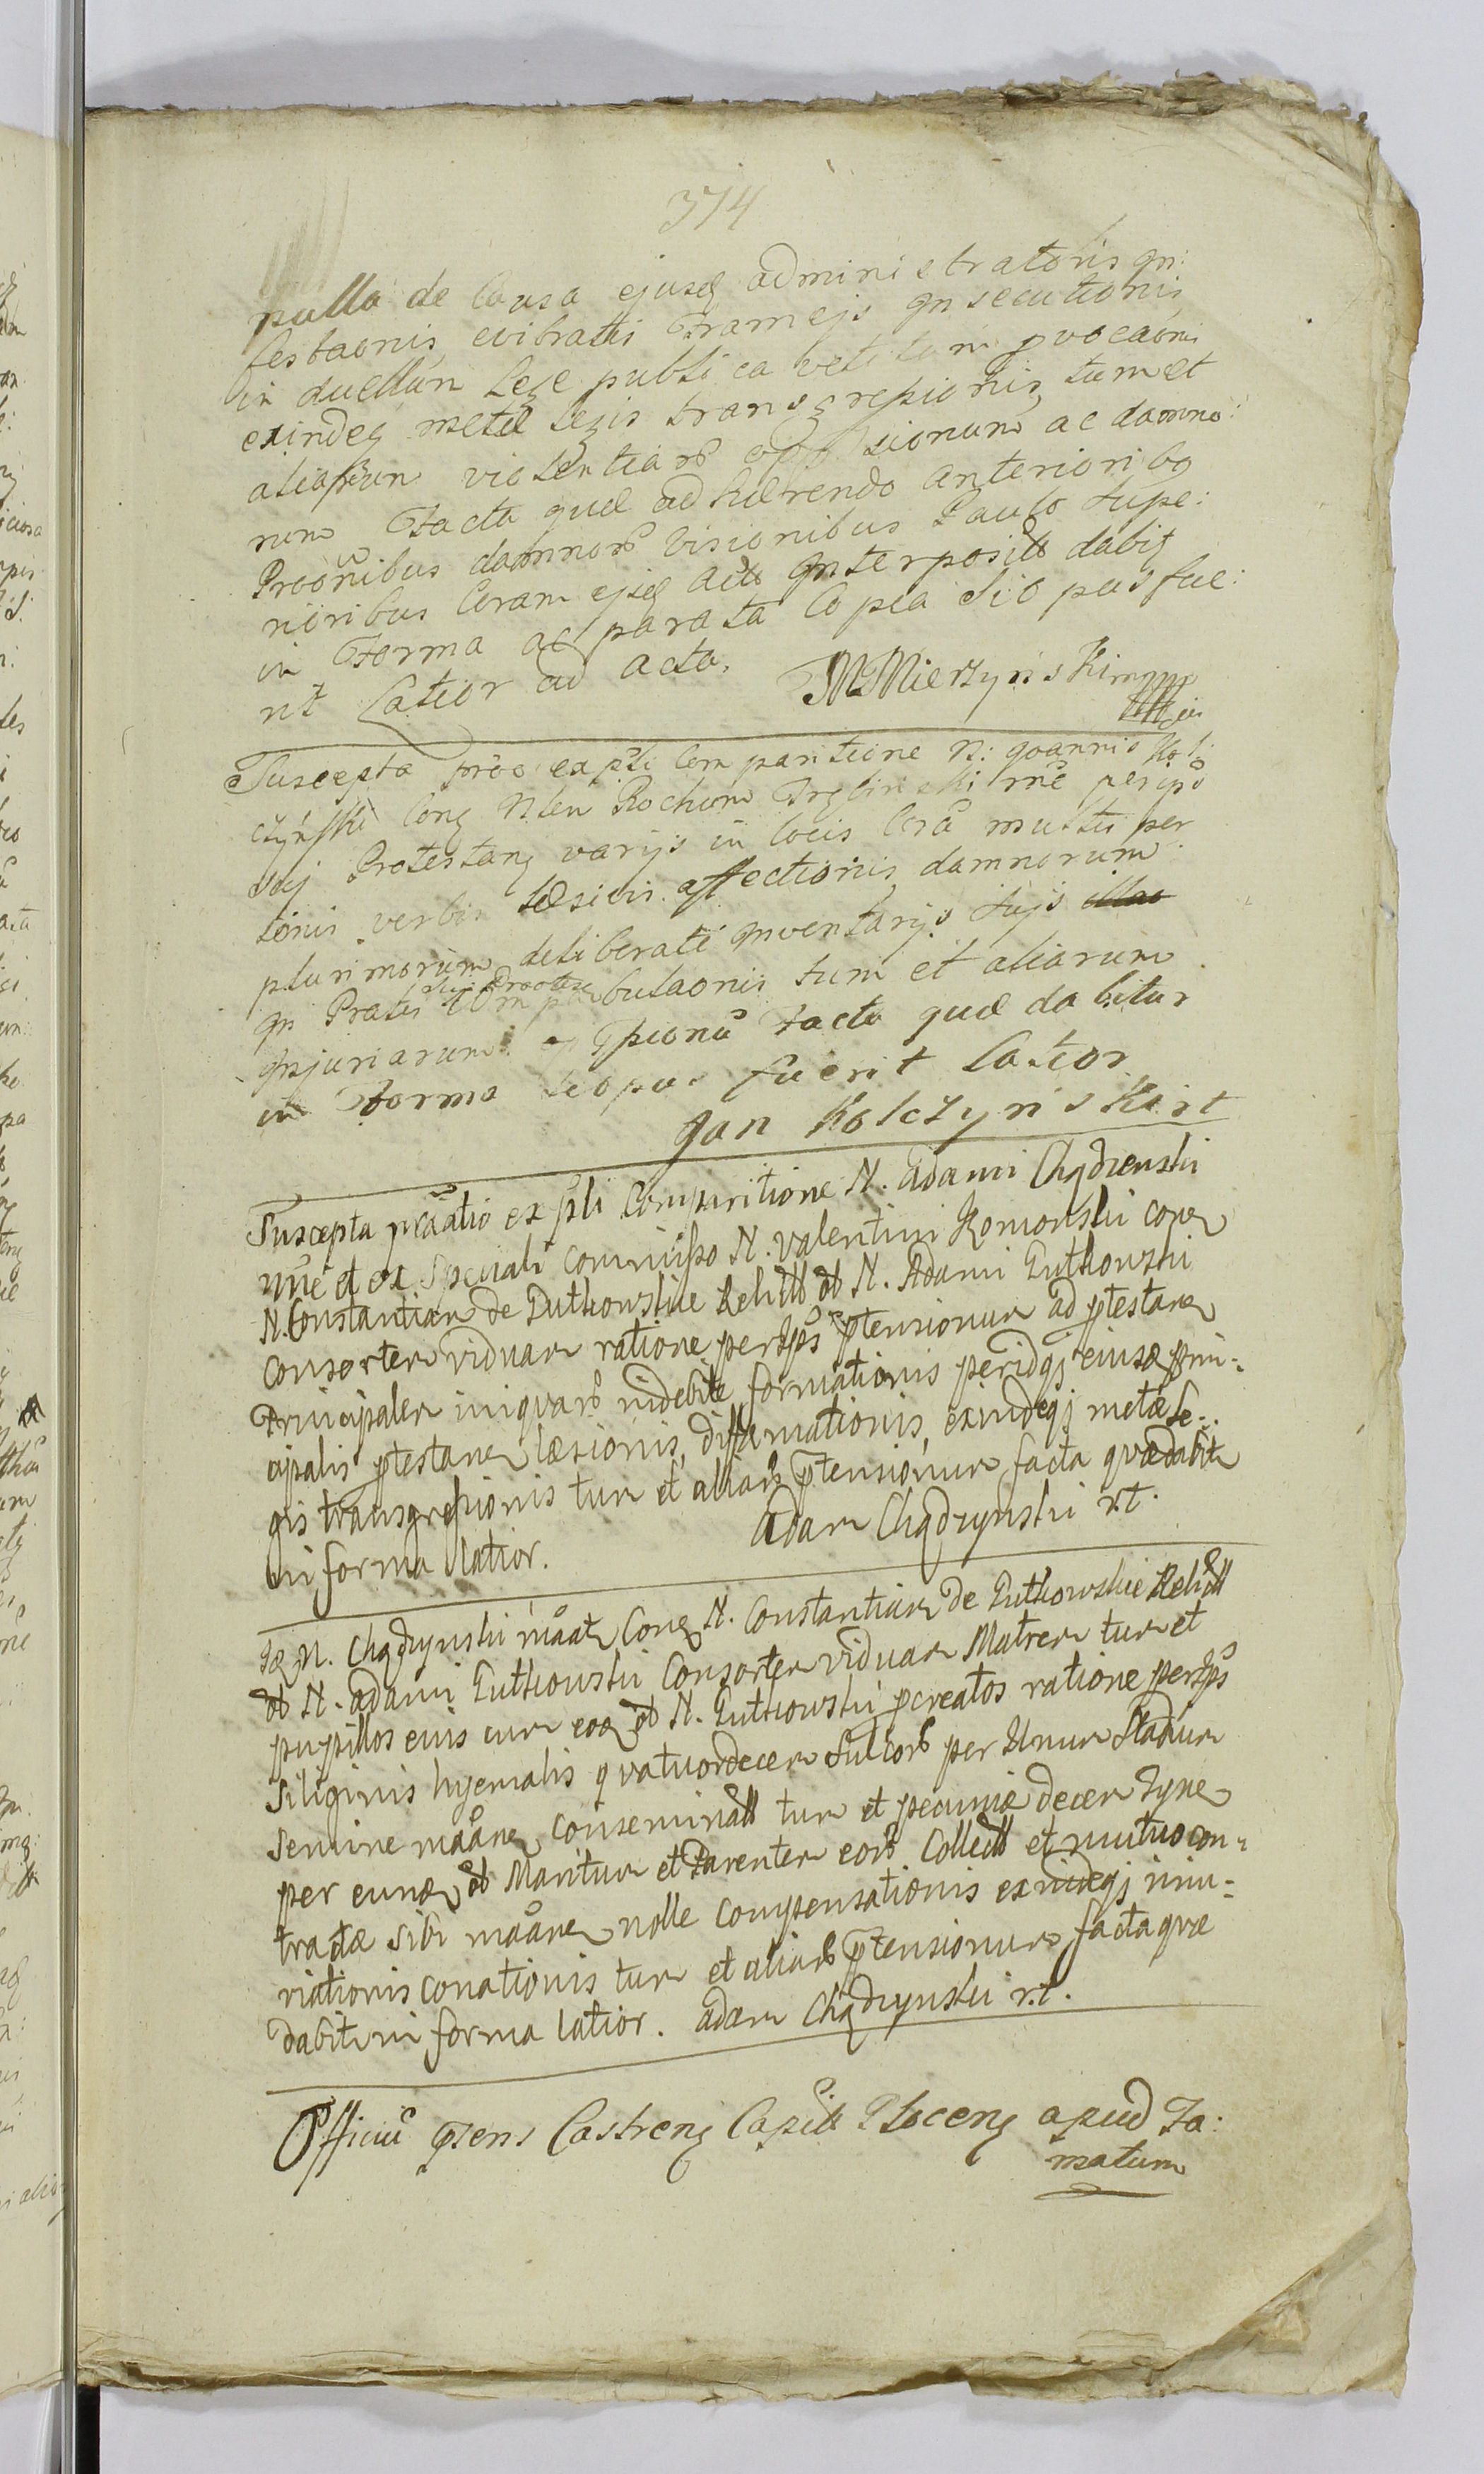 374
nulla de Causa ejusq administratoris qn:
festaonis evibratis Frameis qnsecutionis
in duellum Lege publica vetitum pvocaonis
exindeq metæ Legis transgressionis tum et
aliarum violentiarb oppssionum ac damno:
rum Facta quæ adhærendo anterioribq
Proonibus damnorb Visionibus Paulo supe:
rioribus Coram ejsq Actis Interpositis dabit
in Forma ac parata Copia si opus fue:
rit Latior ad acta. MMierzynski mpp
Suscepta proo ex psti Comparitione N: Joannis Kol:
czyński Conq Nlem Rochum mne per ips
suj Protestanq varijs in locis Cora multis per
sonis verbis læsivis affectionis damnorum
plurimorum deliberate Inventarijs sujs
in Pratis sui Protes butaonis tum et aliarum
Injuriarum et ptsionu Facta quæ dabitur
in Forma si opus fuerit Latior
Jan Kolczynski rt
Suscepta pttatio ex psti Comparitione N. Adami Chądzenski
nne et ex Speciali commisso N. Valentini Komorski conq
N. Constantiam de Rutkowskie Relictb ob N. Adami Rutkowski
consortem viduam ratione per Ips ptensionum ad ptestanq
Principalem iniquarb indebite formationis peridqj eiusq prin-
cipalis ptestanq læsionis, diffamationis, exindeqj metæ Le-
gis transgressionis tum et aliarb ptensionum facta quæ dabitr
in forma latior. Adam Chądzynski rt.
Iq N. Chądzynski maatq Conq N. Constantiam de Rutkowskie Relictb
ob N. Adami Rutkowski Consortem viduam Matrem tum et
pupillos eius cum eoq ob N. Rutkowski pcreatos ratione per Ips
Siliginis hyemalis quatuordecem sulcorb per Unum stadium
Semine maanq conseminatb tum et pecuniæ decem Tynf
per eunq ob Maritum et Parentem eorb Collectb et mutuo con-
tractæ sibi maanq nolle compensationis exindeqj iniu-
riationis conationis tum et aliarb ptensionum facta quæ
dabitr in forma latior. Adam Chądzynski r.t.
Officiu psens Castrenq Capitb Plocenq apud Fa:
matum